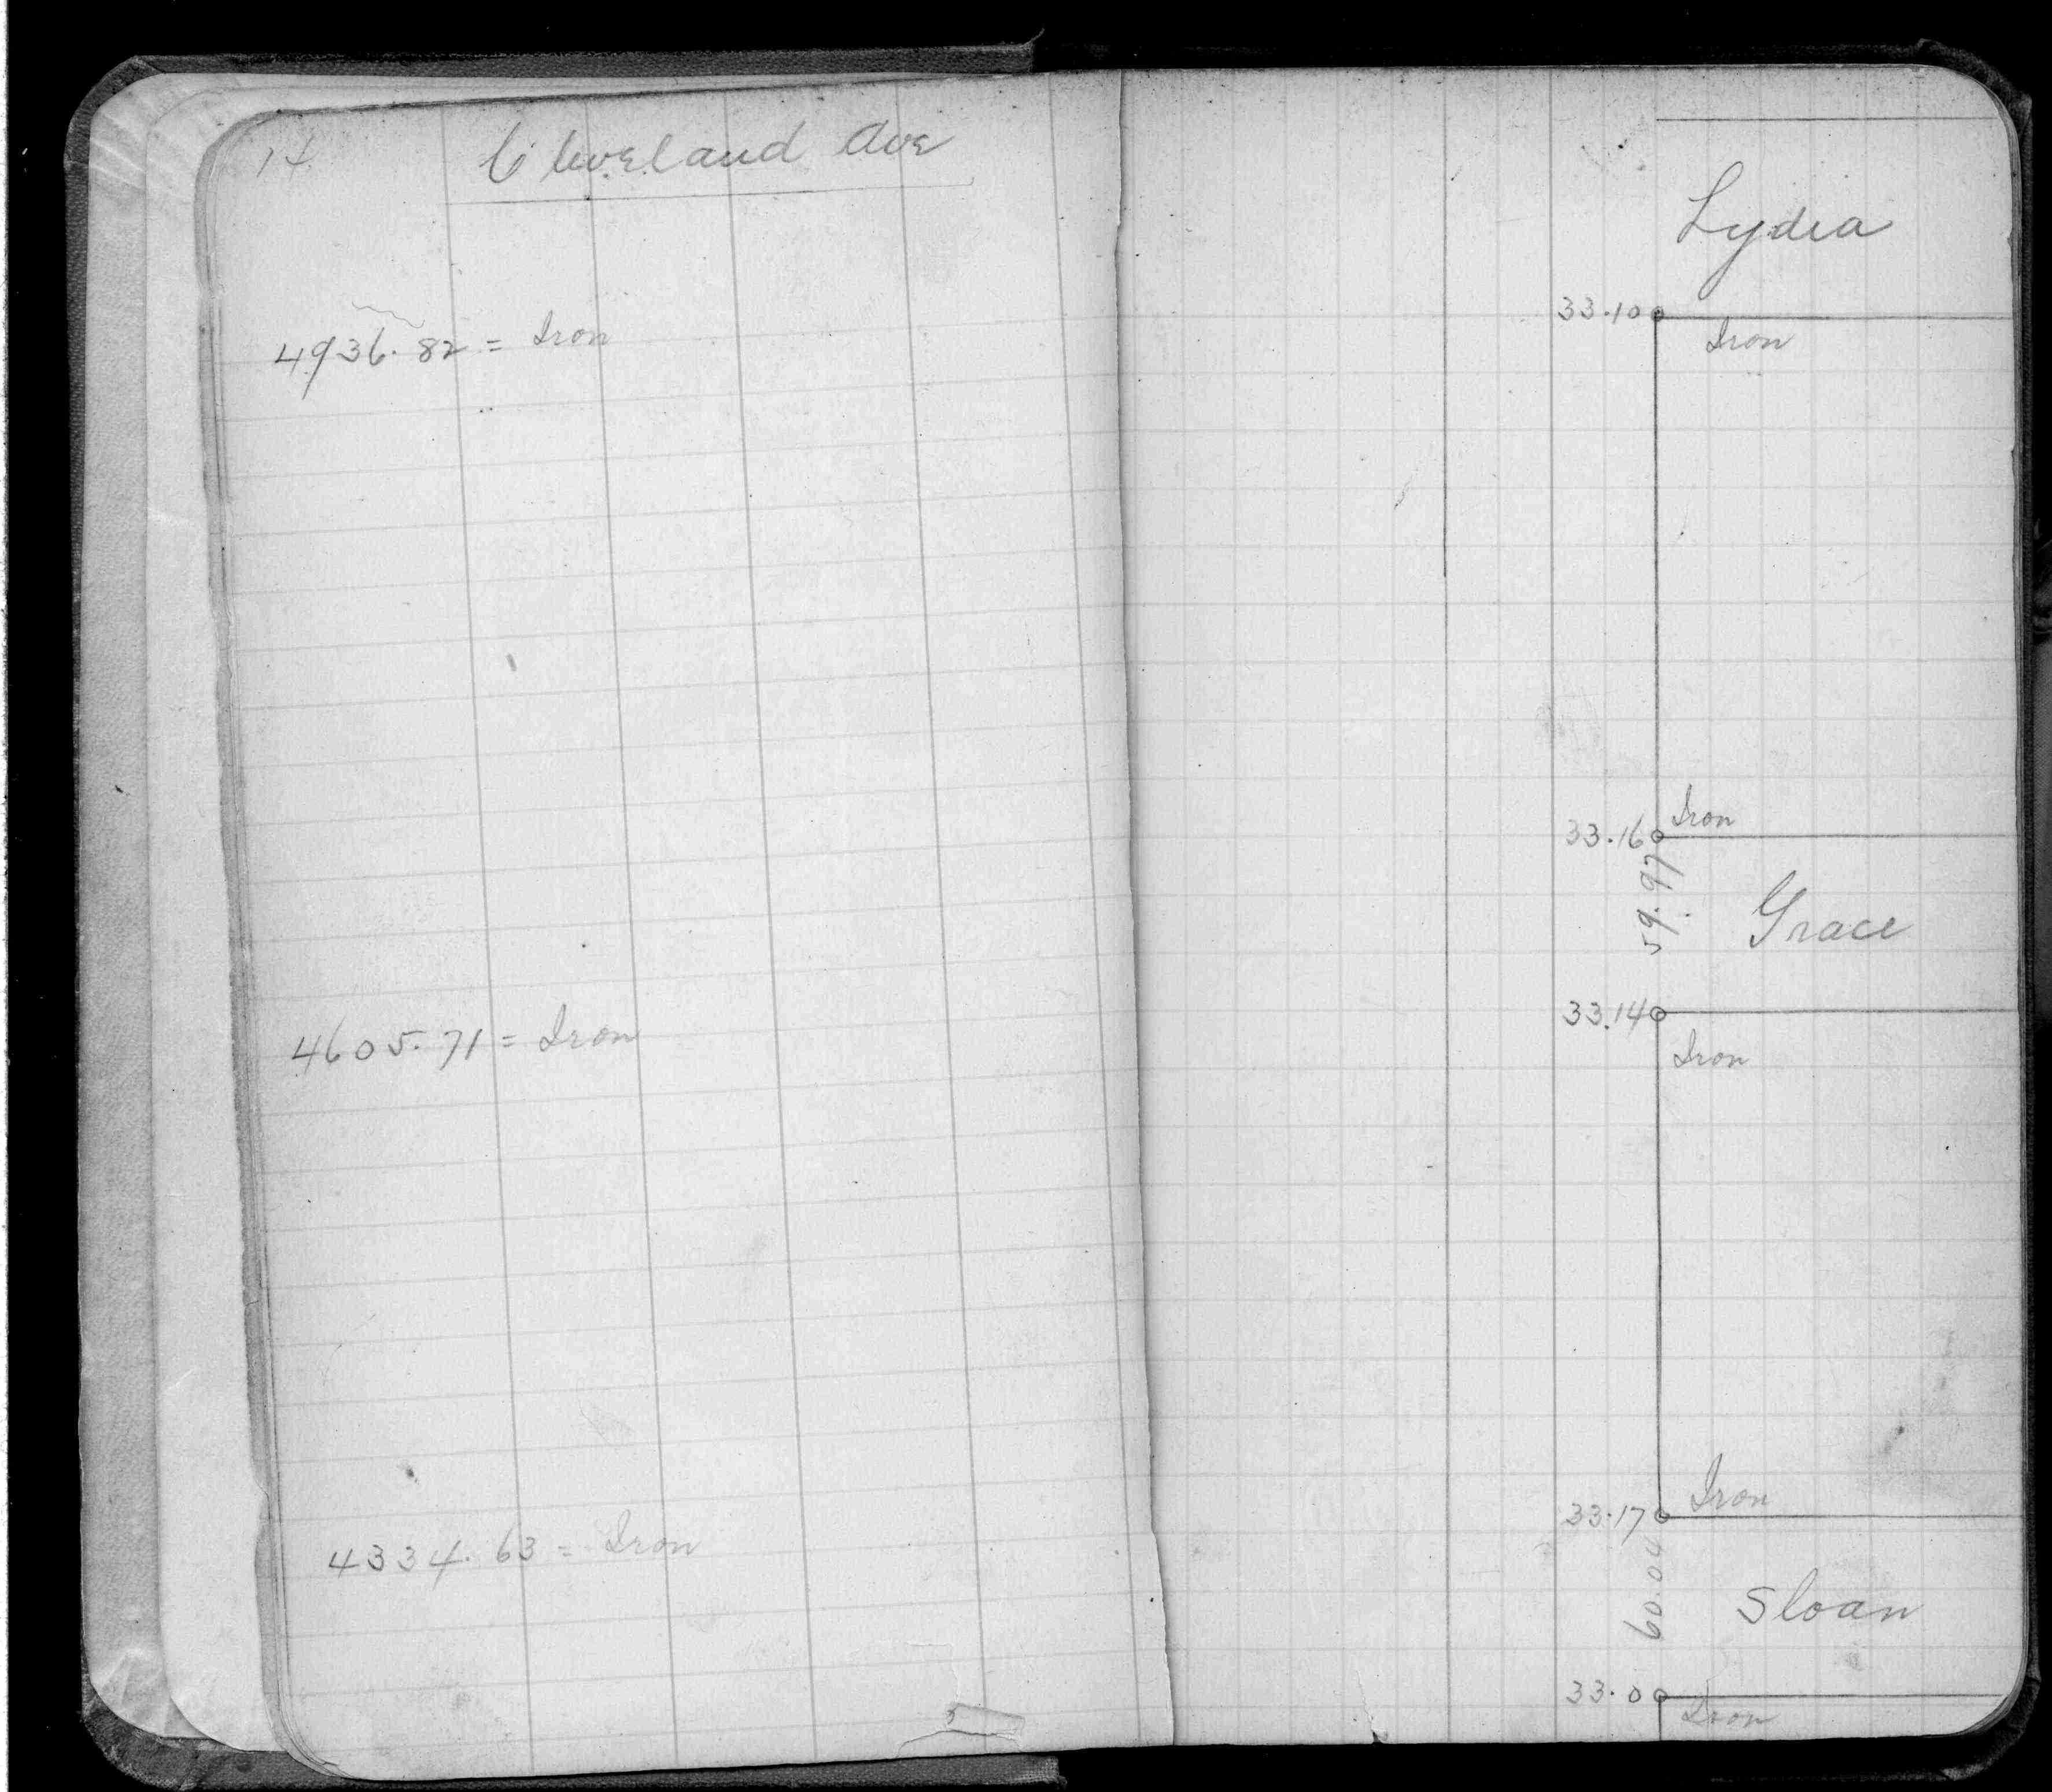 14
Cleveland Ave
4936.82 = Iron
4605.71 = Iron
4334.63 = Iron
Lydia
33.10
Iron
Iron
33.16
59.97
Grace
33.14
Iron
Iron
33.17
60.04
Sloan
33.0
Iron